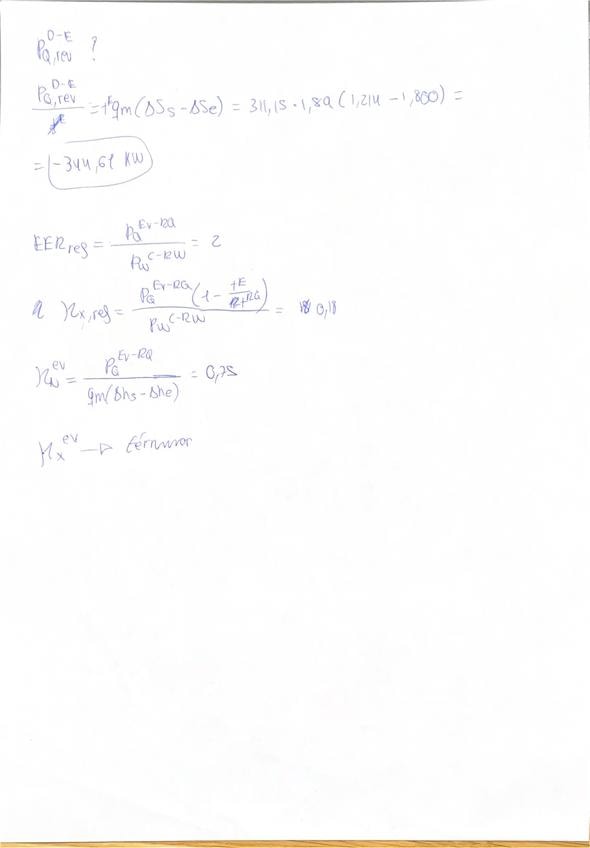 P_{Q,rev}^{D-E} ?
P_{Q,rev}^{D-E} = T^E qm (ΔSs - ΔSe) = 311,15 · 1,89 (1,214 - 1,800) =
= -344,61 KW
EER_{reg} = P_Q^{Ev-RQ} / P_W^{C-RW} = 2
η_{x,reg} = P_Q^{Ev-RQ} (1 - T^E / T^{RQ}) / P_W^{C-RW} = 0,18
η_N^{ev} = P_Q^{Ev-RQ} / qm(Δhs - Δhe) = 0,75
η_x^{ev} → térmico